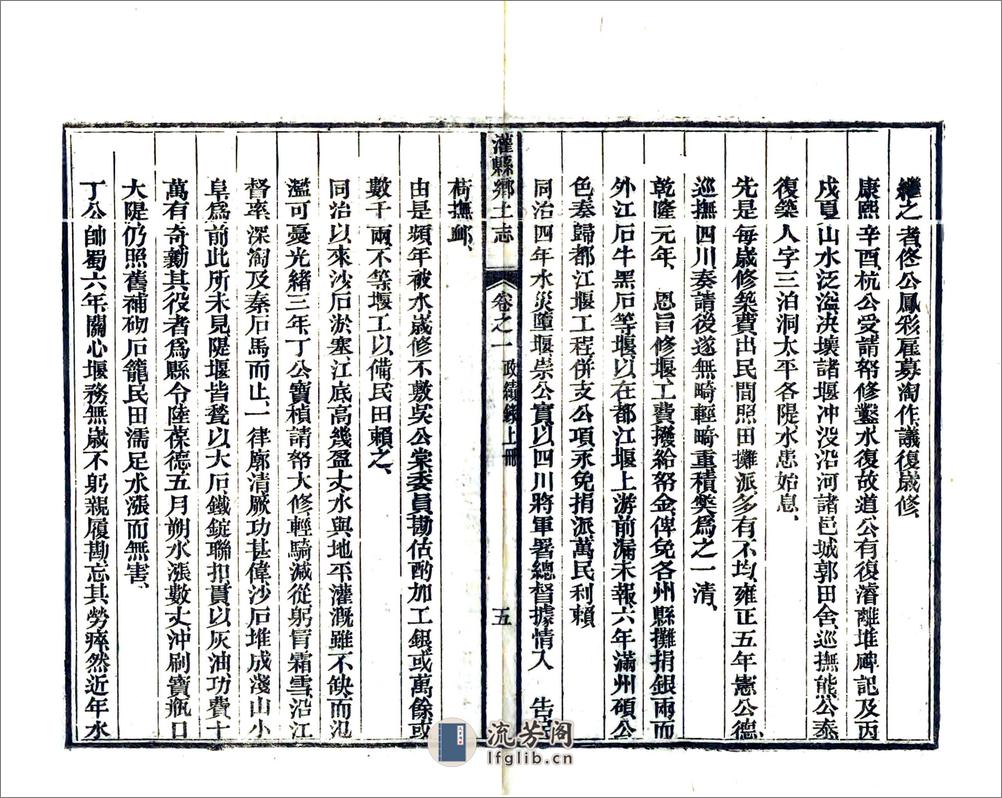 繼之者佟公鳳彩雇募淘作議復歲修、
康熙辛酉杭公受請帑修鑿水復故道公有復濬離堆碑記及丙
戌夏山水泛溢決壞諸堰沖没沿河諸邑城郭田舍、巡撫熊公泰
復築人字三泊洞太平各隄水患始息、
先是每歲修築費出民間照田攤派多有不均、雍正五年憲公德、
巡撫四川奏請後遂無畸輕畸重積獘爲之一清、
乾隆元年、 恩旨修堰工費撥給帑金、俾免各州縣攤捐銀兩而
外江石牛黑石等堰以在都江堰上游前漏未報、六年滿州碩公
色奏歸都江堰工程併支公項永免捐派萬民利賴
同治四年水災墮堰崇公實以四川將軍署總督據情入 告
灌縣鄉土志 卷之一 政績錄上冊 五
荷撫䘏、
由是頻年被水歲修不敷吳公棠委員勘估酌加工銀或萬餘或
數千兩、不等堰工以備民田賴之、
同治以來沙石淤塞江底高幾盈丈水與地平灌溉雖不缺而氾
濫可憂光緒三年、丁公寶楨請帑大修、輕騎減從躬冐霜雪沿江
督率、深淘及秦石馬而止、一律廓清厥功甚偉沙石堆成淺山小
阜爲前此所未見隄堰皆甃以大石鐵錠聯扣貫以灰油功費十
萬有奇勷其役者爲縣令陸葆德五月朔水漲數丈沖刷寶瓶口
大隄仍照舊補砌石籠民田濡足水漲而無害、
丁公帥蜀六年關心堰務無歲不躬親履勘忘其勞瘁然近年水
流芳阁
lfglib.cn